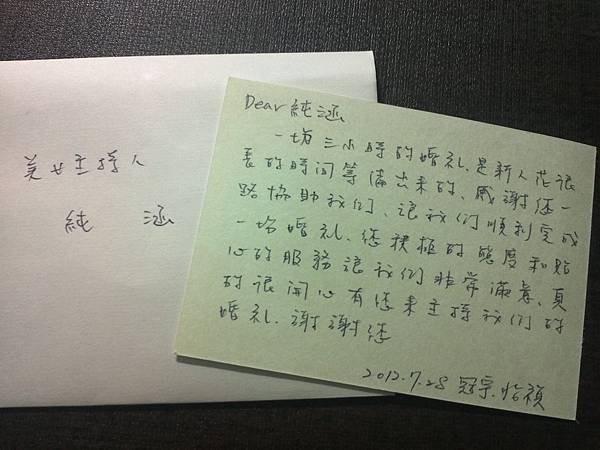 美女主持人
純涵
Dear 純涵
一場三小時的婚礼,是新人花很
長的時间籌備出來的、感謝您一
路協助我们、讓我们順利完成
一場婚礼、您積極的態度和貼
心的服務讓我们非常滿意、真
的很開心有您來主持我们的
婚礼.謝謝您
2012.7.28 冠宗.怡禎